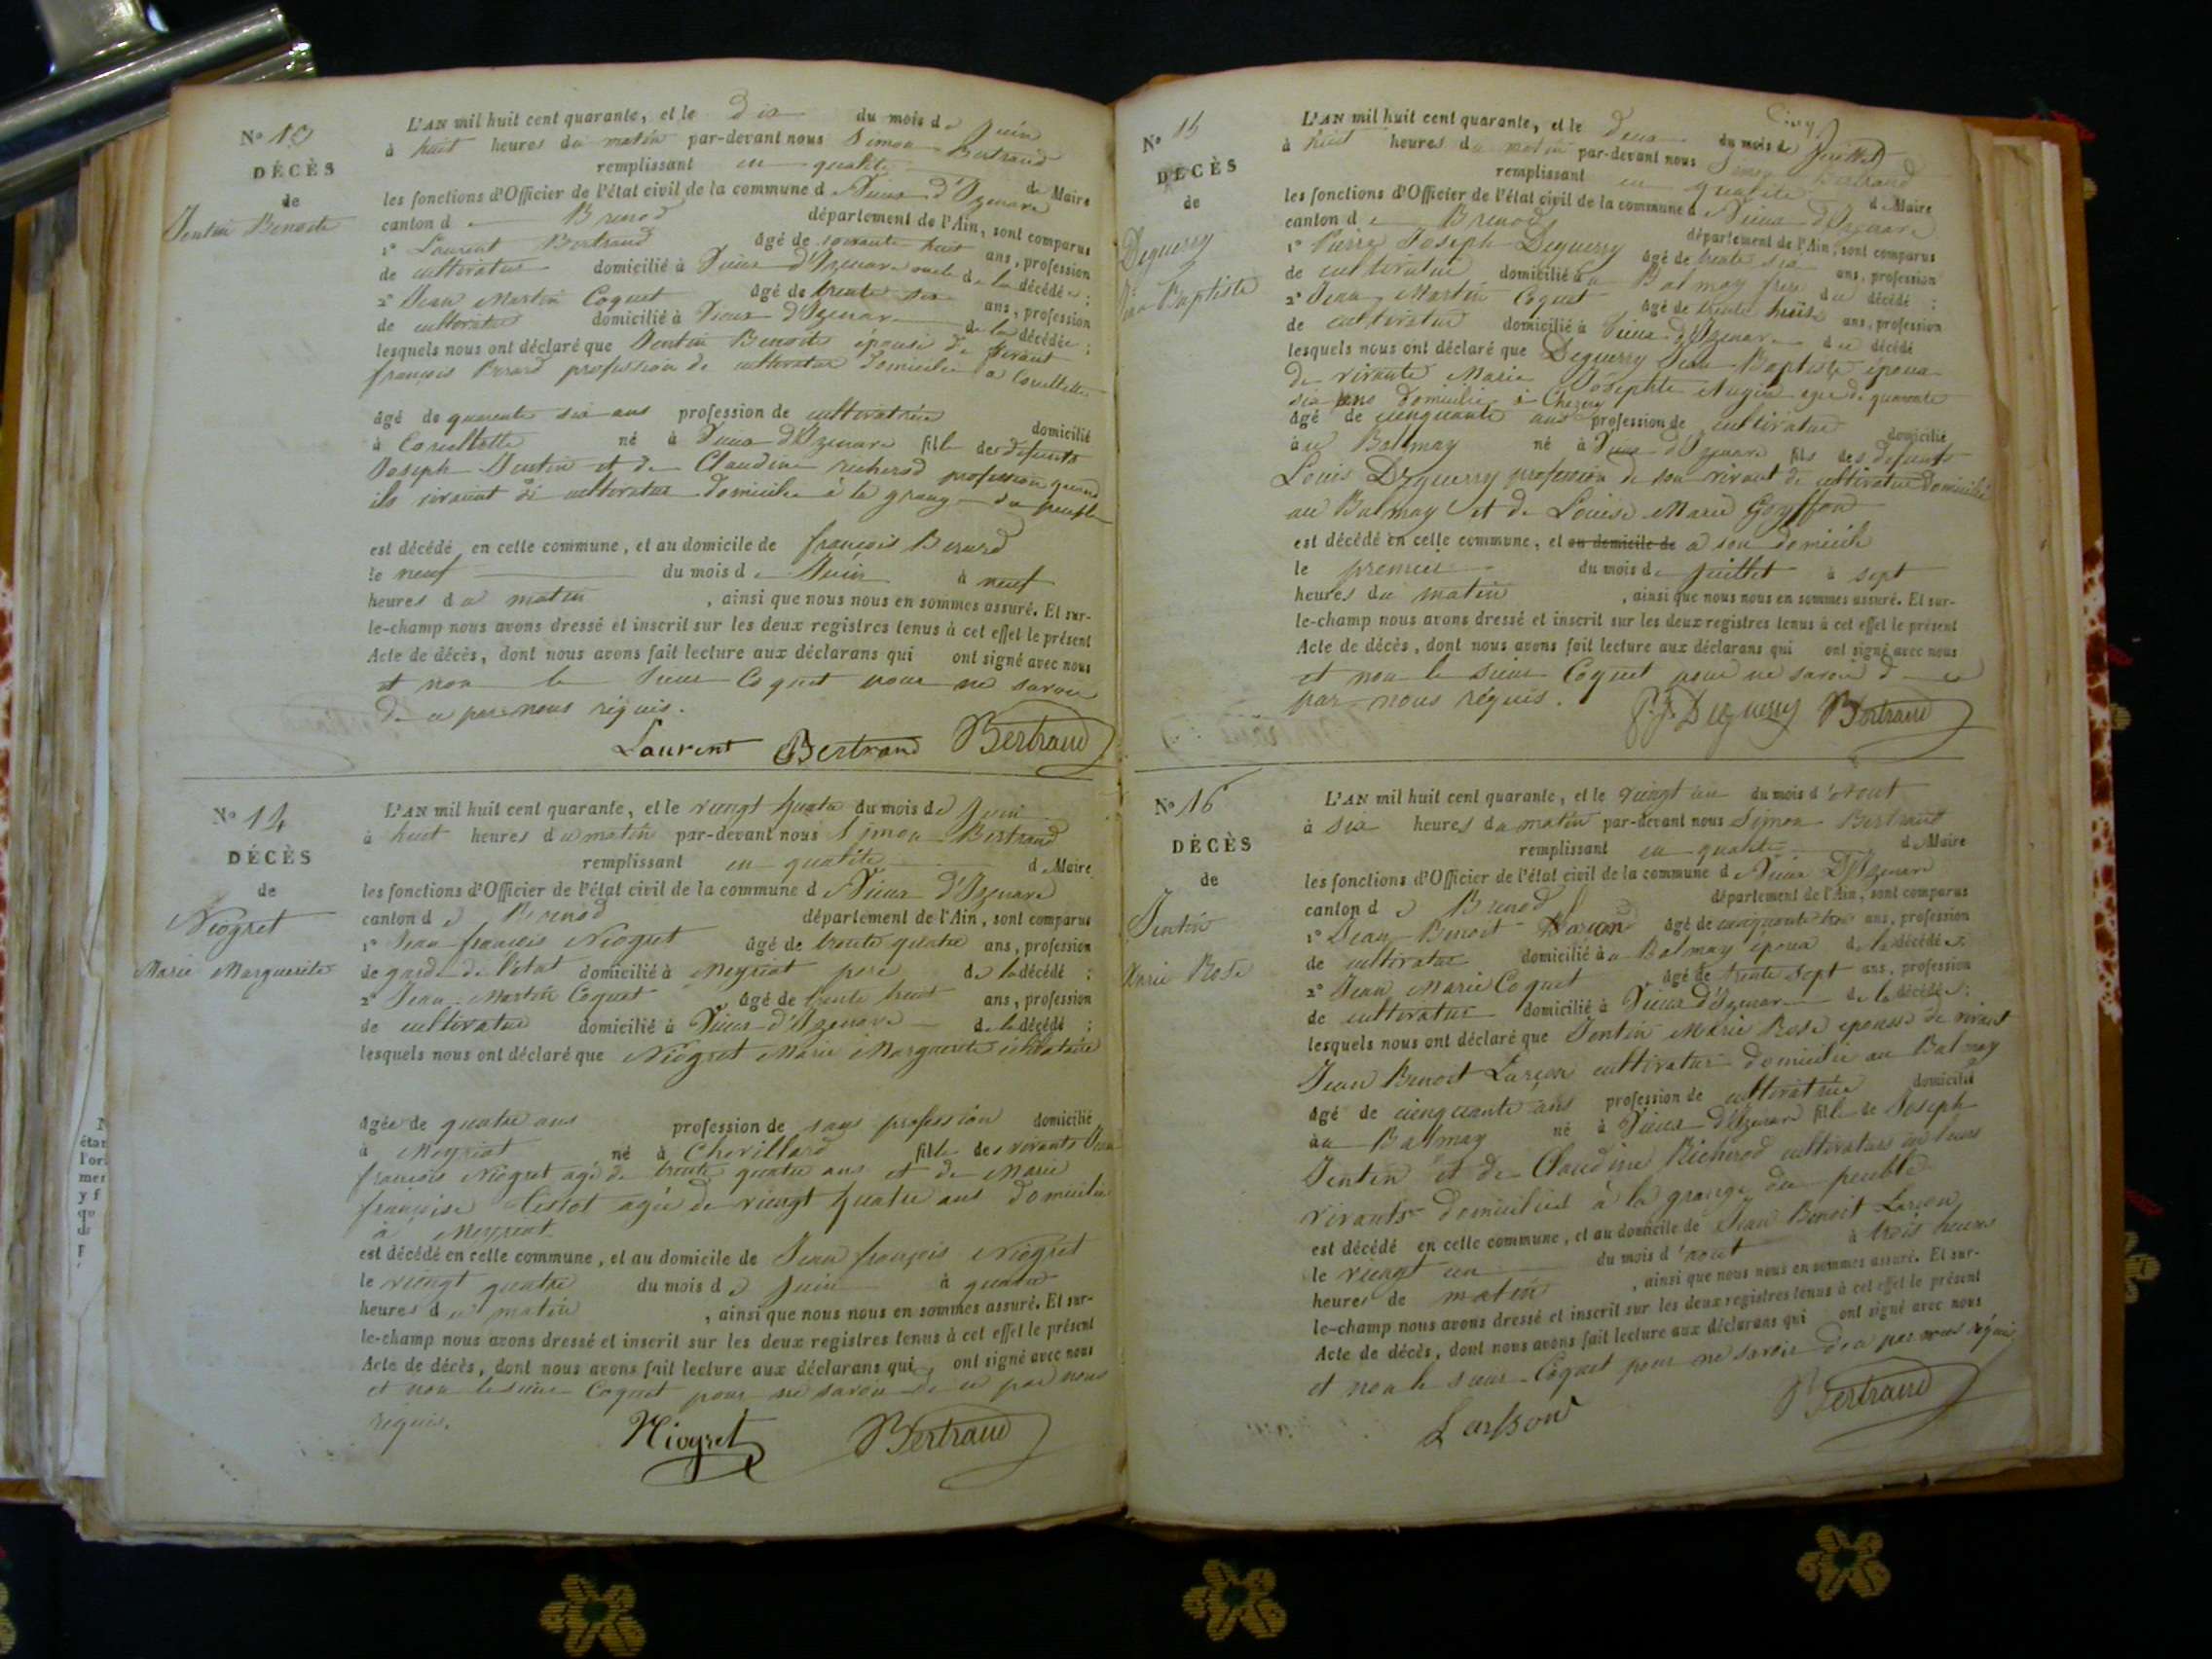 N° 13
DÉCÈS
de
Jentin Benoite
L'AN mil huit cent quarante, et le dix du mois de Juin
à huit heures du matin par-devant nous Simon Bertrand
remplissant en qualité de Maire
les fonctions d'Officier de l'état civil de la commune de Vieux d'Izenave
canton de Brenod département de l'Ain, sont comparus
1° Laurent Bertrand âgé de soixante huit ans, profession
de cultivateur domicilié à Vieux d'Izenave oncle de la décédée ;
2° Jean Martin Coquet âgé de trente six ans, profession
de cultivateur domicilié à Vieux d'Izenave de la décédée ;
lesquels nous ont déclaré que Jentin Benoite épouse de vivant
françois Berard profession de cultivateur domicilié à Corcellette
âgé de quarente six ans profession de cultivatrice domicilié
à Corcellette né à Vieux d'Izenave fille des defunts
Joseph Jentin et de Claudine richerod profession quand
ils vivaient de cultivateur domicilié à la grange du peuple
est décédé en cette commune, et au domicile de françois Berard
le neuf du mois de Juin à neuf
heures du matin , ainsi que nous nous en sommes assuré. Et sur-
le-champ nous avons dressé et inscrit sur les deux registres tenus à cet effet le présent
Acte de décès, dont nous avons fait lecture aux déclarans qui ont signé avec nous
et non le sieur Coquet pour ne savoir
de ce par nous réquis.
Laurent Bertrand Bertrand
N° 14
DÉCÈS
de
Niogret
Marie Marguerite
L'AN mil huit cent quarante, et le vingt quatre du mois de Juin
à huit heures du matin par-devant nous Simon Bertrand
remplissant en qualité de Maire
les fonctions d'Officier de l'état civil de la commune de Vieux d'Izenave
canton de Brenod département de l'Ain, sont comparus
1° Jean françois Niogret âgé de trente quatre ans, profession
de garde de l'état domicilié à Meyriat pere de la décédé ;
2° Jean Martin Coquet âgé de trente huit ans, profession
de cultivateur domicilié à Vieux d'Izenave de la décédé ;
lesquels nous ont déclaré que Niogret Marie Marguerite célibataire
âgée de quatre ans profession de sans profession domicilié
à Meyriat né à Chevillard fille des vivants Jean
françois Niogret agé de trente quatre ans et de Marie
françoise agée de vingt quatre ans domicilié
à Meyriat
est décédé en cette commune, et au domicile de Jean françois Niogret
le vingt quatre du mois de Juin à quatre
heures du matin , ainsi que nous nous en sommes assuré. Et sur-
le-champ nous avons dressé et inscrit sur les deux registres tenus à cet effet le présent
Acte de décès, dont nous avons fait lecture aux déclarans qui ont signé avec nous
et non le sieur Coquet pour ne savoir de ce par nous
réquis.
Niogret Bertrand
N° 15
DÉCÈS
de
Deguerry
Jean Baptiste
L'AN mil huit cent quarante, et le deux du mois de Juillet
à huit heures du matin par-devant nous Simon Bertrand
remplissant en qualité de Maire
les fonctions d'Officier de l'état civil de la commune de Vieux d'Izenave
canton de Brenod département de l'Ain, sont comparus
1° Pierre Joseph Deguerry âgé de trente six ans, profession
de cultivateur domicilié au Balmay frere du décédé ;
2° Jean Martin Coquet âgé de trente huit ans, profession
de cultivateur domicilié à Vieux d'Izenave du décédé
lesquels nous ont déclaré que Deguerry Jean Baptiste époux
de vivante Marie Josephte agée de quarante
six ans domicilié à
âgé de cinquante ans profession de cultivateur domicilié
au Balmay né à Vieux d'Izenave fils des defunts
Louis Deguerry profession de son vivant de cultivateur domicilié
au Balmay et de Louise Marie Goyffon
est décédé en cette commune, et au domicile de à son domicile
le premier du mois de Juillet à sept
heures du matin , ainsi que nous nous en sommes assuré. Et sur-
le-champ nous avons dressé et inscrit sur les deux registres tenus à cet effet le présent
Acte de décès, dont nous avons fait lecture aux déclarans qui ont signé avec nous
et non le sieur Coquet pour ne savoir de ce
par nous réquis. P.J. Deguerry Bertrand
N° 16
DÉCÈS
de
Jentin
Marie Rose
L'AN mil huit cent quarante, et le vingt un du mois d'Aout
à six heures du matin par-devant nous Simon Bertrand
remplissant en qualité de Maire
les fonctions d'Officier de l'état civil de la commune de Vieux d'Izenave
canton de Brenod département de l'Ain, sont comparus
1° Jean Benoit Larçon âgé de cinquante trois ans, profession
de cultivateur domicilié au Balmay époux de la décédée ;
2° Jean Marie Coquet âgé de trente sept ans, profession
de cultivateur domicilié à Vieux d'Izenave de la décédée ;
lesquels nous ont déclaré que Jentin Marie Rose épouse de vivant
Jean Benoit Larçon cultivateur domicilié au Balmay
âgé de cinquante ans profession de cultivatrice domicilié
au Balmay né à Vieux d'Izenave fille de Joseph
Jentin et de Claudine Richerod cultivateurs en leurs
vivants domiciliés à la grange du peuble
est décédé en cette commune, et au domicile de Jean Benoit Larçon
le vingt un du mois d'aout à trois heures
heures de matin , ainsi que nous nous en sommes assuré. Et sur-
le-champ nous avons dressé et inscrit sur les deux registres tenus à cet effet le présent
Acte de décès, dont nous avons fait lecture aux déclarans qui ont signé avec nous
et non le sieur Coquet pour ne savoir de ce par nous réquis
Larson Bertrand